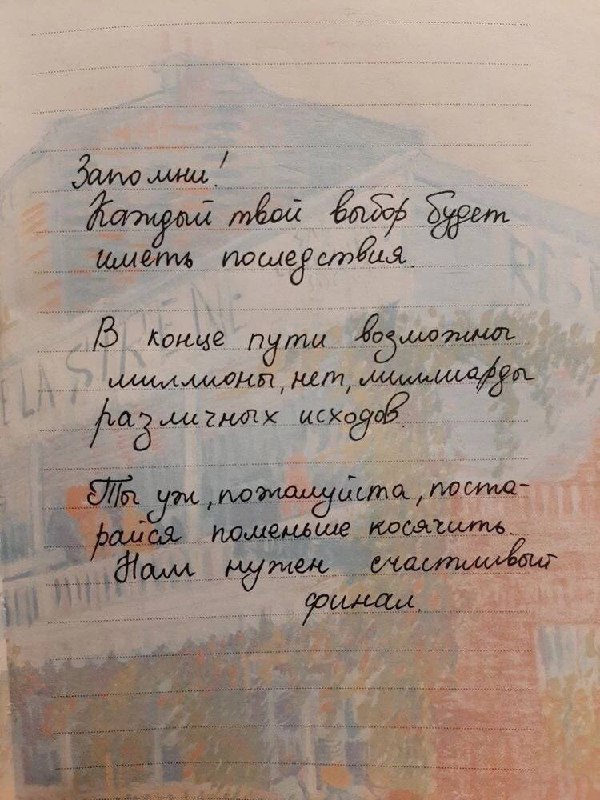 Запомни!
Каждый твой выбор будет
иметь последствия.
В конце пути возможны
миллионы, нет, миллиарды
различных исходов.
Ты уж, пожалуйста, поста-
райся поменьше косячить
Нам нужен счастливый
финал.